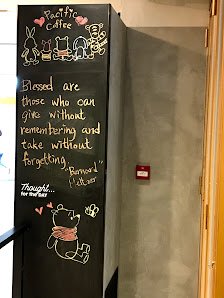 Pacific
Coffee
Blessed are
those who can
give without
remembering and
take without
forgetting.
"Bernard
Meltzer
Thought...
for the day